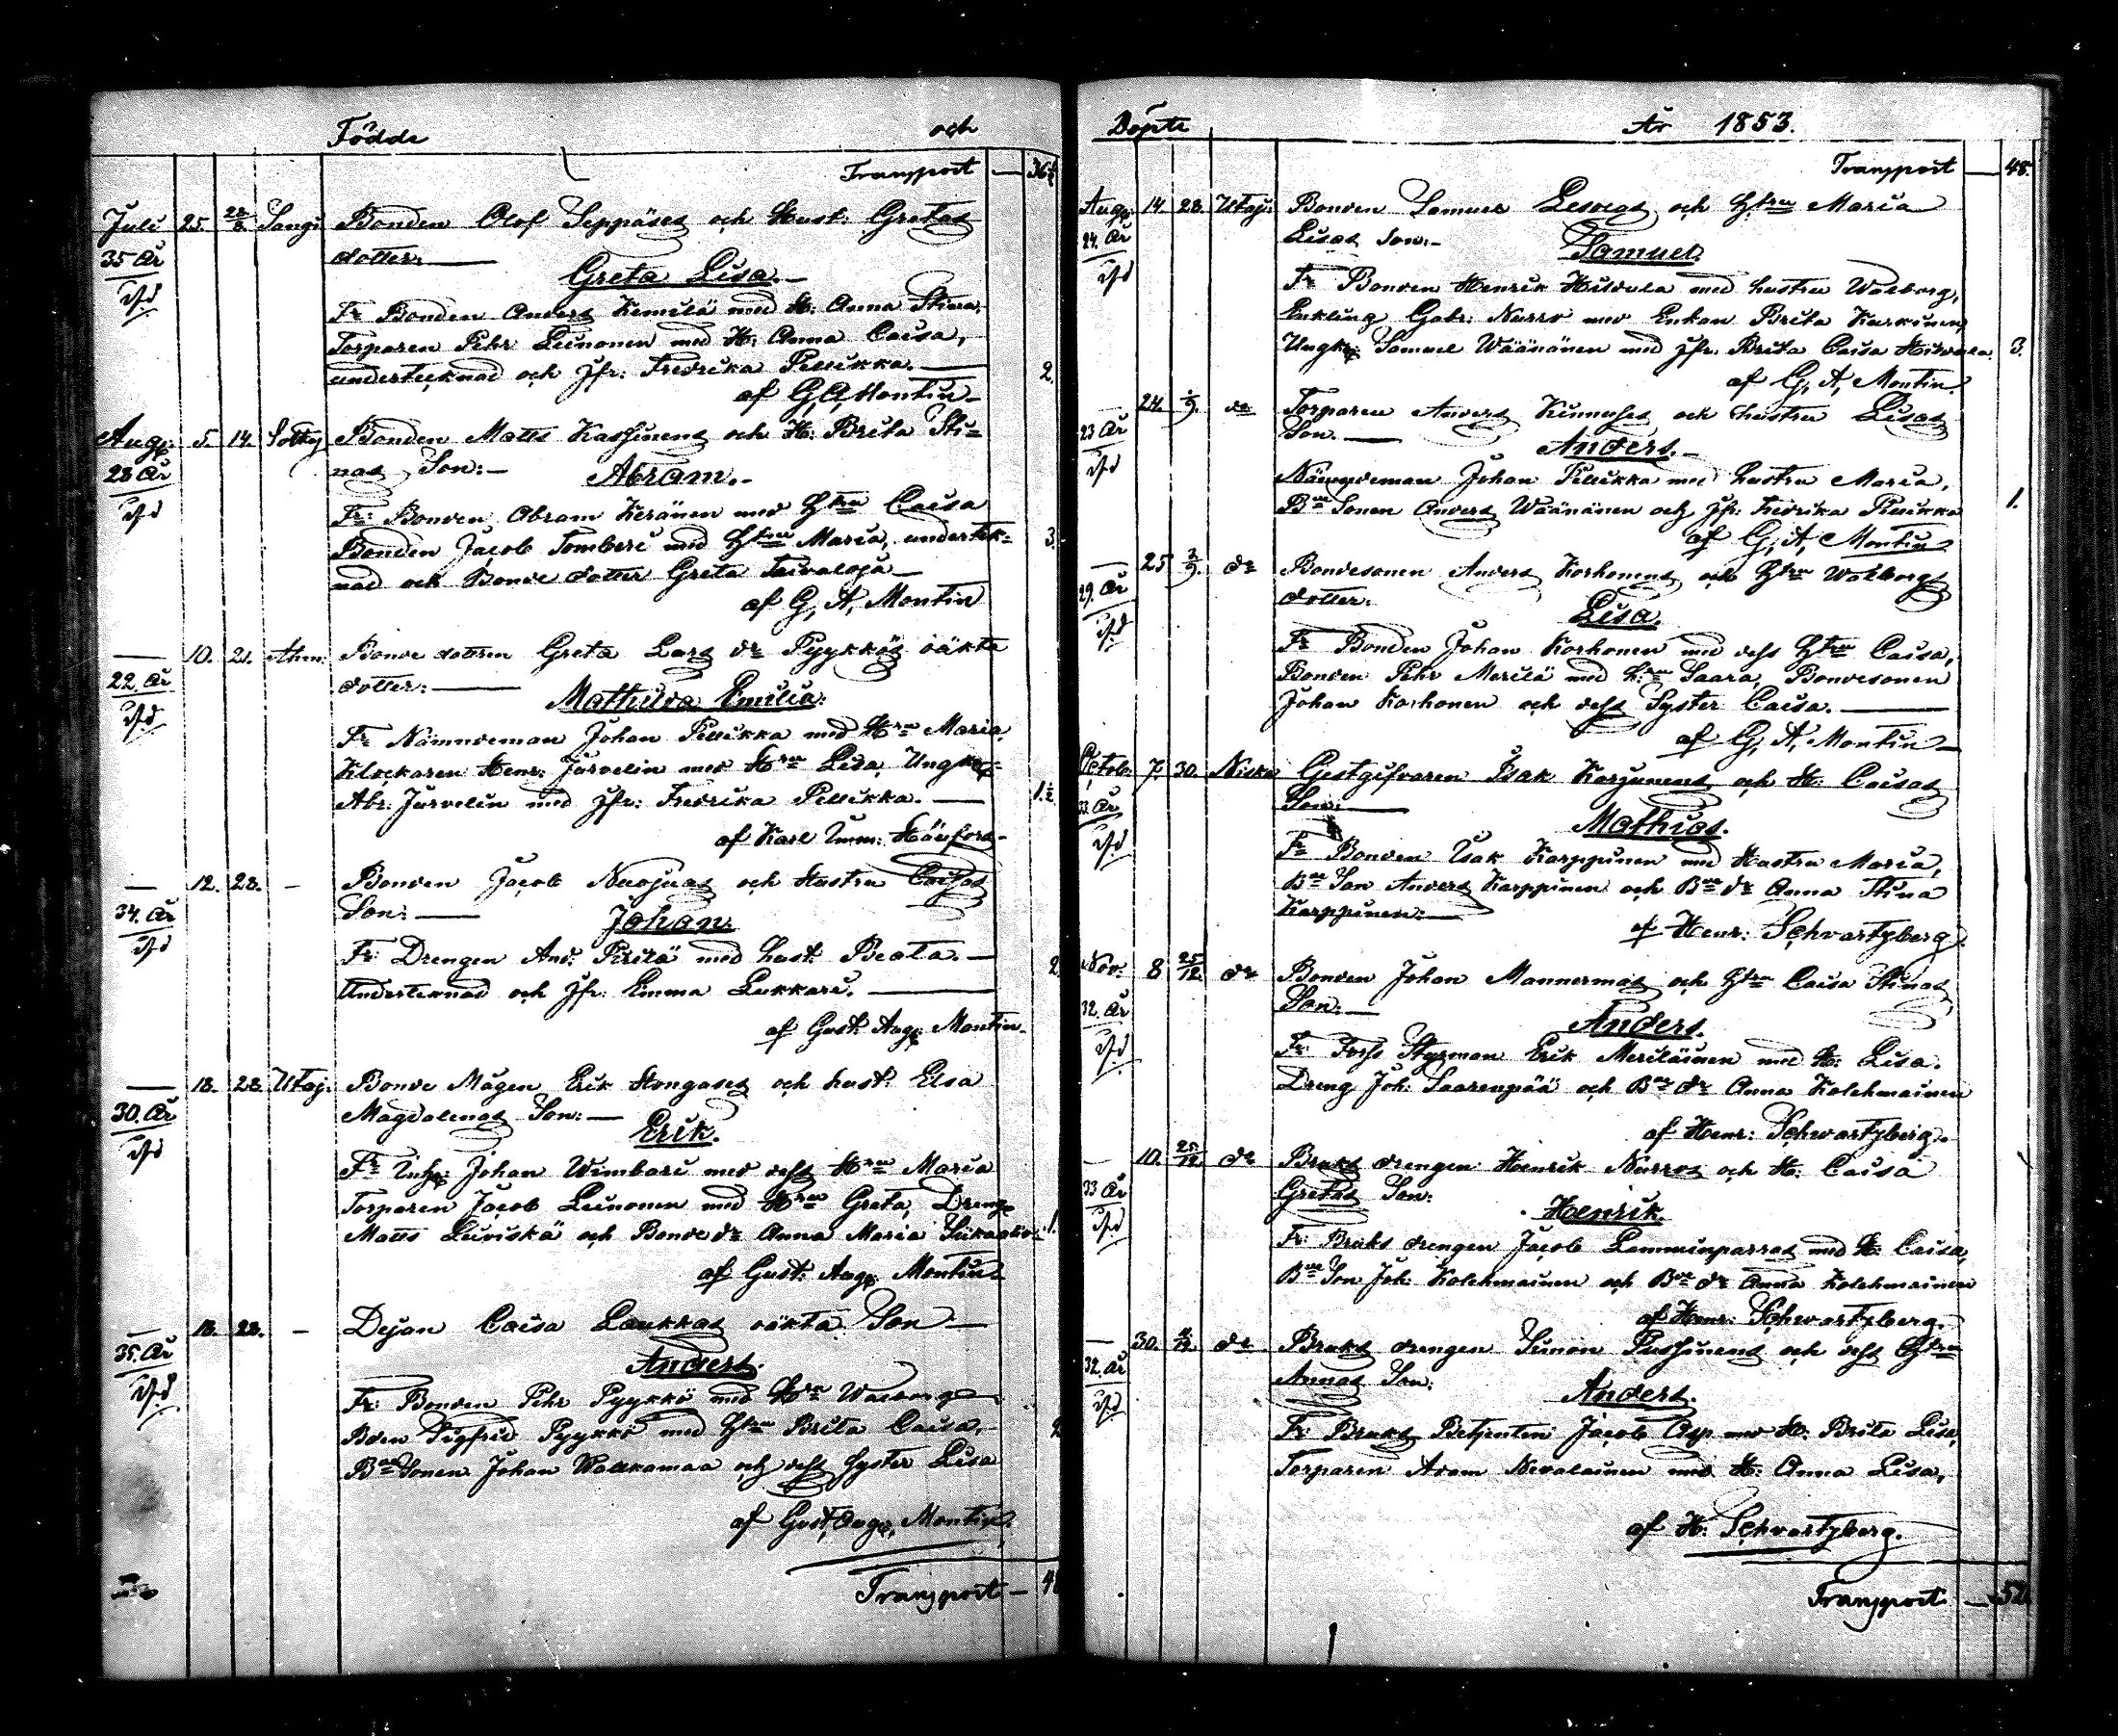 Födde och
Transport — 36½
Juli 25. 28/8 Sangi Bonden Olof Seppäses och Hust: Gretas
35 År dotter: —
Greta Lisa. —
Fr Bonden Anders Kemilä med H: Anna Stina,
Torparen Pehr Leinonen med H: Anna Caisa,
undertecknad och Jfr: Fredrika Pellikka. — 2.
af G, A, Montin —
Aug: 5. 14. Bonden Matts Kassinens och H: Brita Sti=
28 År nas Son: — Abram. —
Fr: Bonden Abram Keränen med Hstru Caisa
Bonden Jacob Tomberi med Hstru Maria, undertek= 3.
nad och Bonde dotter Greta Taivaloja —
af G, A, Montin
— 10. 21. Ahm: Bonde dottren Greta Lars dr Pyykkös oäkta
22. År dotter: —
Mathilda Emilia:
Fr Nämndeman Johan Pellikka med Hru Maria,
Klockaren Henr: Jurvelin med Hru Lisa, Ungk:
Abr: Jurvelin med Jfr: Fredrika Pellikka. — 1.½
af Karl Imm: Hänfors —
— 12. 28. — Bonden Jacob Nuojuas och Hustru Caisas
34. År Son: — Johan.
Fr: Drengen And: Pirilä med hust: Beata. — 2
Undertecknad och Jfr: Emma Lukkari. —
af Gust: Aug: Montin —
— 18. 28. Utaj: Bonde Mågen Erik Hongases och hust: Elsa
30. År Magdalenas Son: —
Erik.
Fr Johan Wimbari med dess Hru Maria
Torparen Jacob Leinonen med Hru Greta, Dreng
Matts Luviskä och Bonde dr Anna Maria 1.
af Gust: Aug: Montin
— 18. 28. — Dejan Caisa Laukkas oäkta Son —
35. År Anders.
Fr: Bonden Pehr Pyykkö med Hru Walborg
Bden Sigfrid Pyykkö med Hstru Brita Caisa,
Bde Sonen Johan Walkamaa och dess Syster Lisa
af Gust, Aug, Montin,
Transport —
Döpte År 1853.
Transport — 48.
Aug: 14 28. Utaj: Bonden Samuel Lesolas och Hstru Maria
24. År Lisas Son: — Samuel.
Fr Bonden Henrik Hildula med hustru Walborg,
Enkling Gabr: Nurro med Enkan Brita Kurkinen,
Ungk: Samuel Wäänänen med Jfr: Brita Caisa Hildula. 3.
af G, A, Montin.
— 24. 4/9. do Torparen Anders Kinnuses och hustru Lisas
23 År Son. — Anders. —
Nämndeman Johan Pellikka med hustru Maria,
Bde Sonen Anders Wäänänen och Jfr: Fredrika Pellikka 1.
af G, A, Montin
— 25 3/9. do Bondesonen Anders Korhonens och Hstru Walborgs
29. År dotter. Lisa.
Fr Bonden Johan Korhonen med dess Hstru Caisa,
Bonden Pehr Merilä med H:ru Saara, Bondesonen
Johan Korhonen och dess Syster Caisa. —
af G, A, Montin —
Octob: 7. 30. Niska Gestgifvaren Isak Karjunens och H: Caisas
33 År Son: — Mathias.
Fr Bonden Isak Karppinen med Hustru Maria,
Bde Son Anders Karppinen och Bde dr Anna Stina
Karppinen: —
af Henr: Schvartzberg.
Nov: 8 25/12 do Bonden Johan Mannermas och Hstru Caisa Stinas
32. År Son: — Anders.
Fr: Forss Styrman Erik Meriläinen med H: Lisa.
Dreng Joh: Saarenpää och Bde dr Anna Kolehmainen
af Henr: Schvartzberg.
10. 25/12. do Bruks drengen Henrik Nurros och H. Caisa
33 År Gretas Son: Henrik.
Fr: Bruks drengen Jacob Lamminparras med H: Caisa,
Bde Son Joh: Kolehmainen och Bde dr Anna Kolehmainen
af Henr: Schvartzberg.
— 30. do Bruks drengen Simon Pussinens och dess Hstru
32. År Annas Son: Anders.
Fr: Bruks Betjenten Jacob Asp med H: Brita Lisa,
Torparen Adam Nevalainen med H: Anna Lisa,
af H: Schvartzberg.
Transport. — 52.